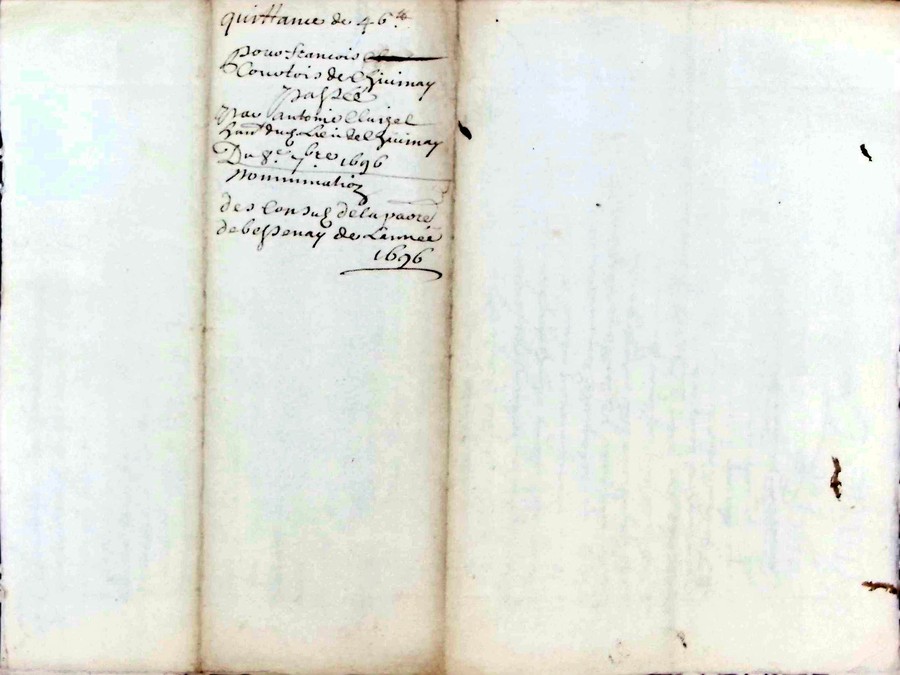 quittance de 46 ₶
pour francois
Courtois de Chuinay
passée
par Antoine Cluizel
du 8e 7bre 1696
Nomination
des Consulz de la parre
de bessenay de Lannée
1696